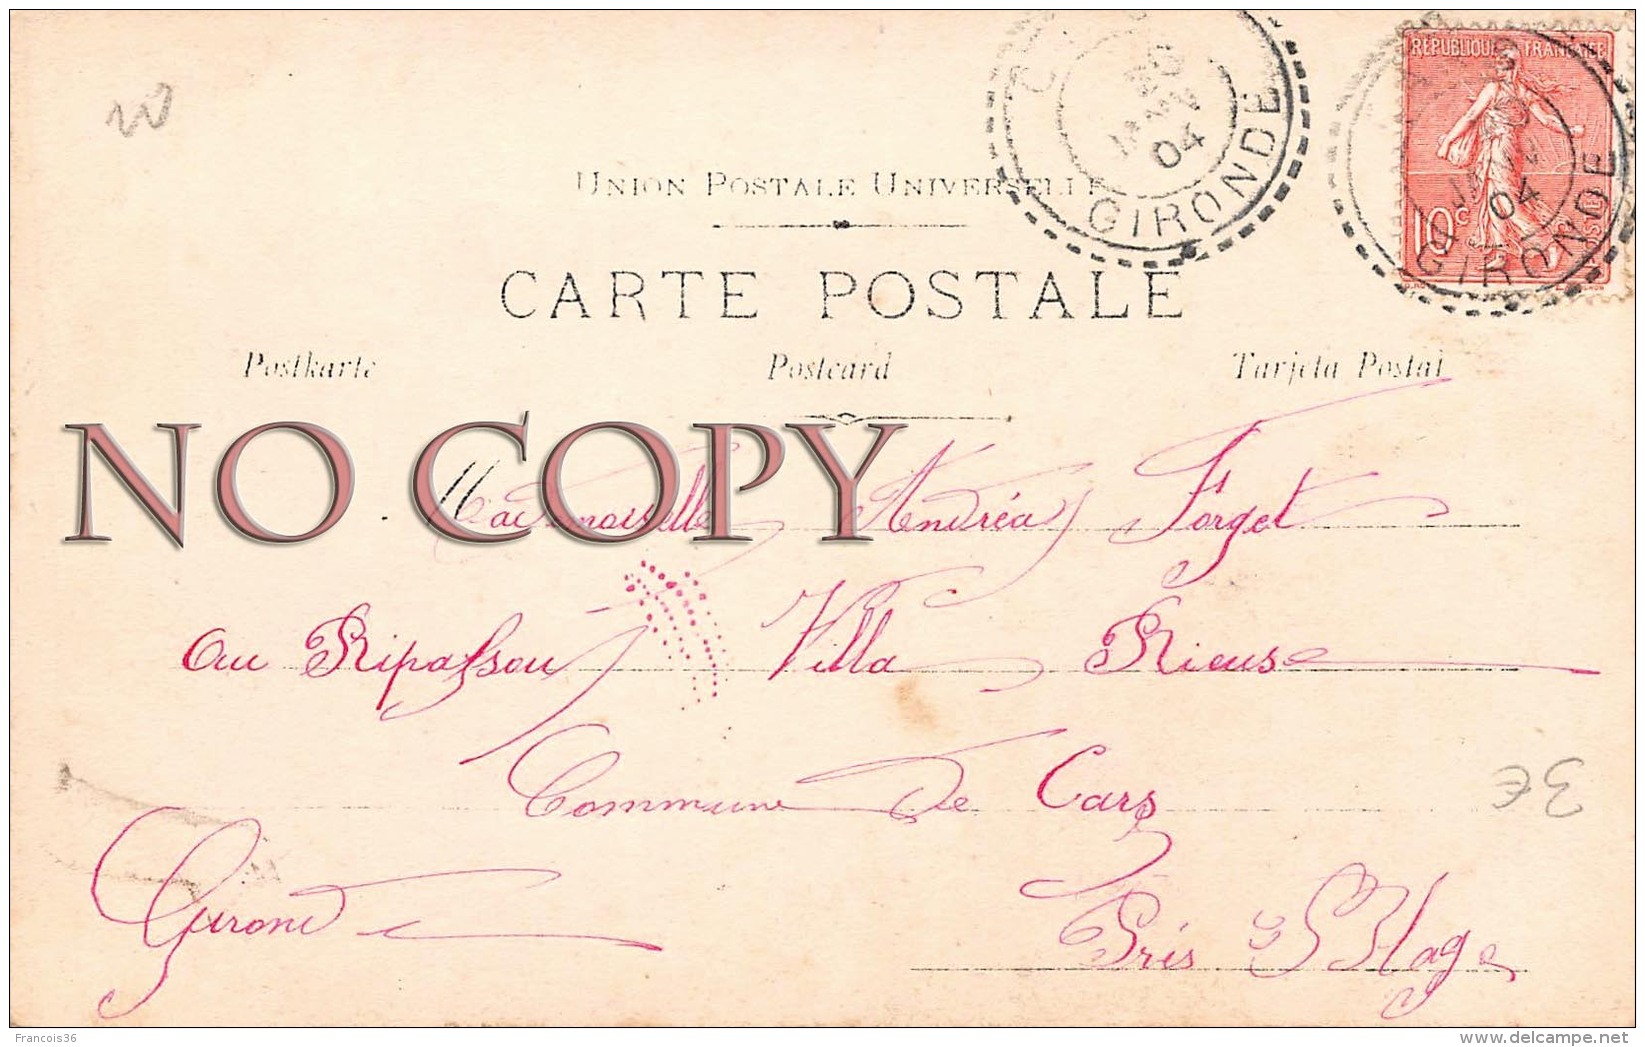 RÉPUBLIQUE FRANÇAISE
10c
04
GIRONDE
04
GIRONDE
UNION POSTALE UNIVERSELLE
CARTE POSTALE
Postkarte
Postcard
Tarjeta Postal
NO COPY
Mademoiselle Andréa Forget
au Ripassou Villa Rieuse
Commune de Cars
Gironde
Près
3€
Francois36
www.delcampe.net